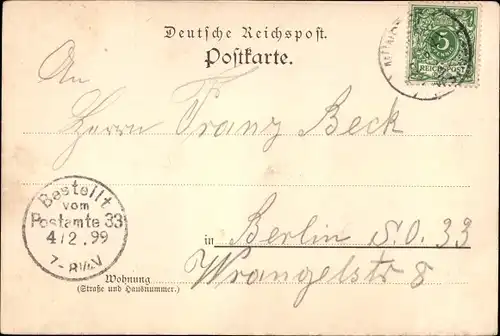 Deutsche Reichspost.
Postkarte.
5
REICHSPOST
An
Herrn Franz Beck
Bestellt
vom
Postamte 33
4/2.99
in Berlin S.O. 33
Wrangelstr 8
Wohnung
(Straße und Hausnummer.)